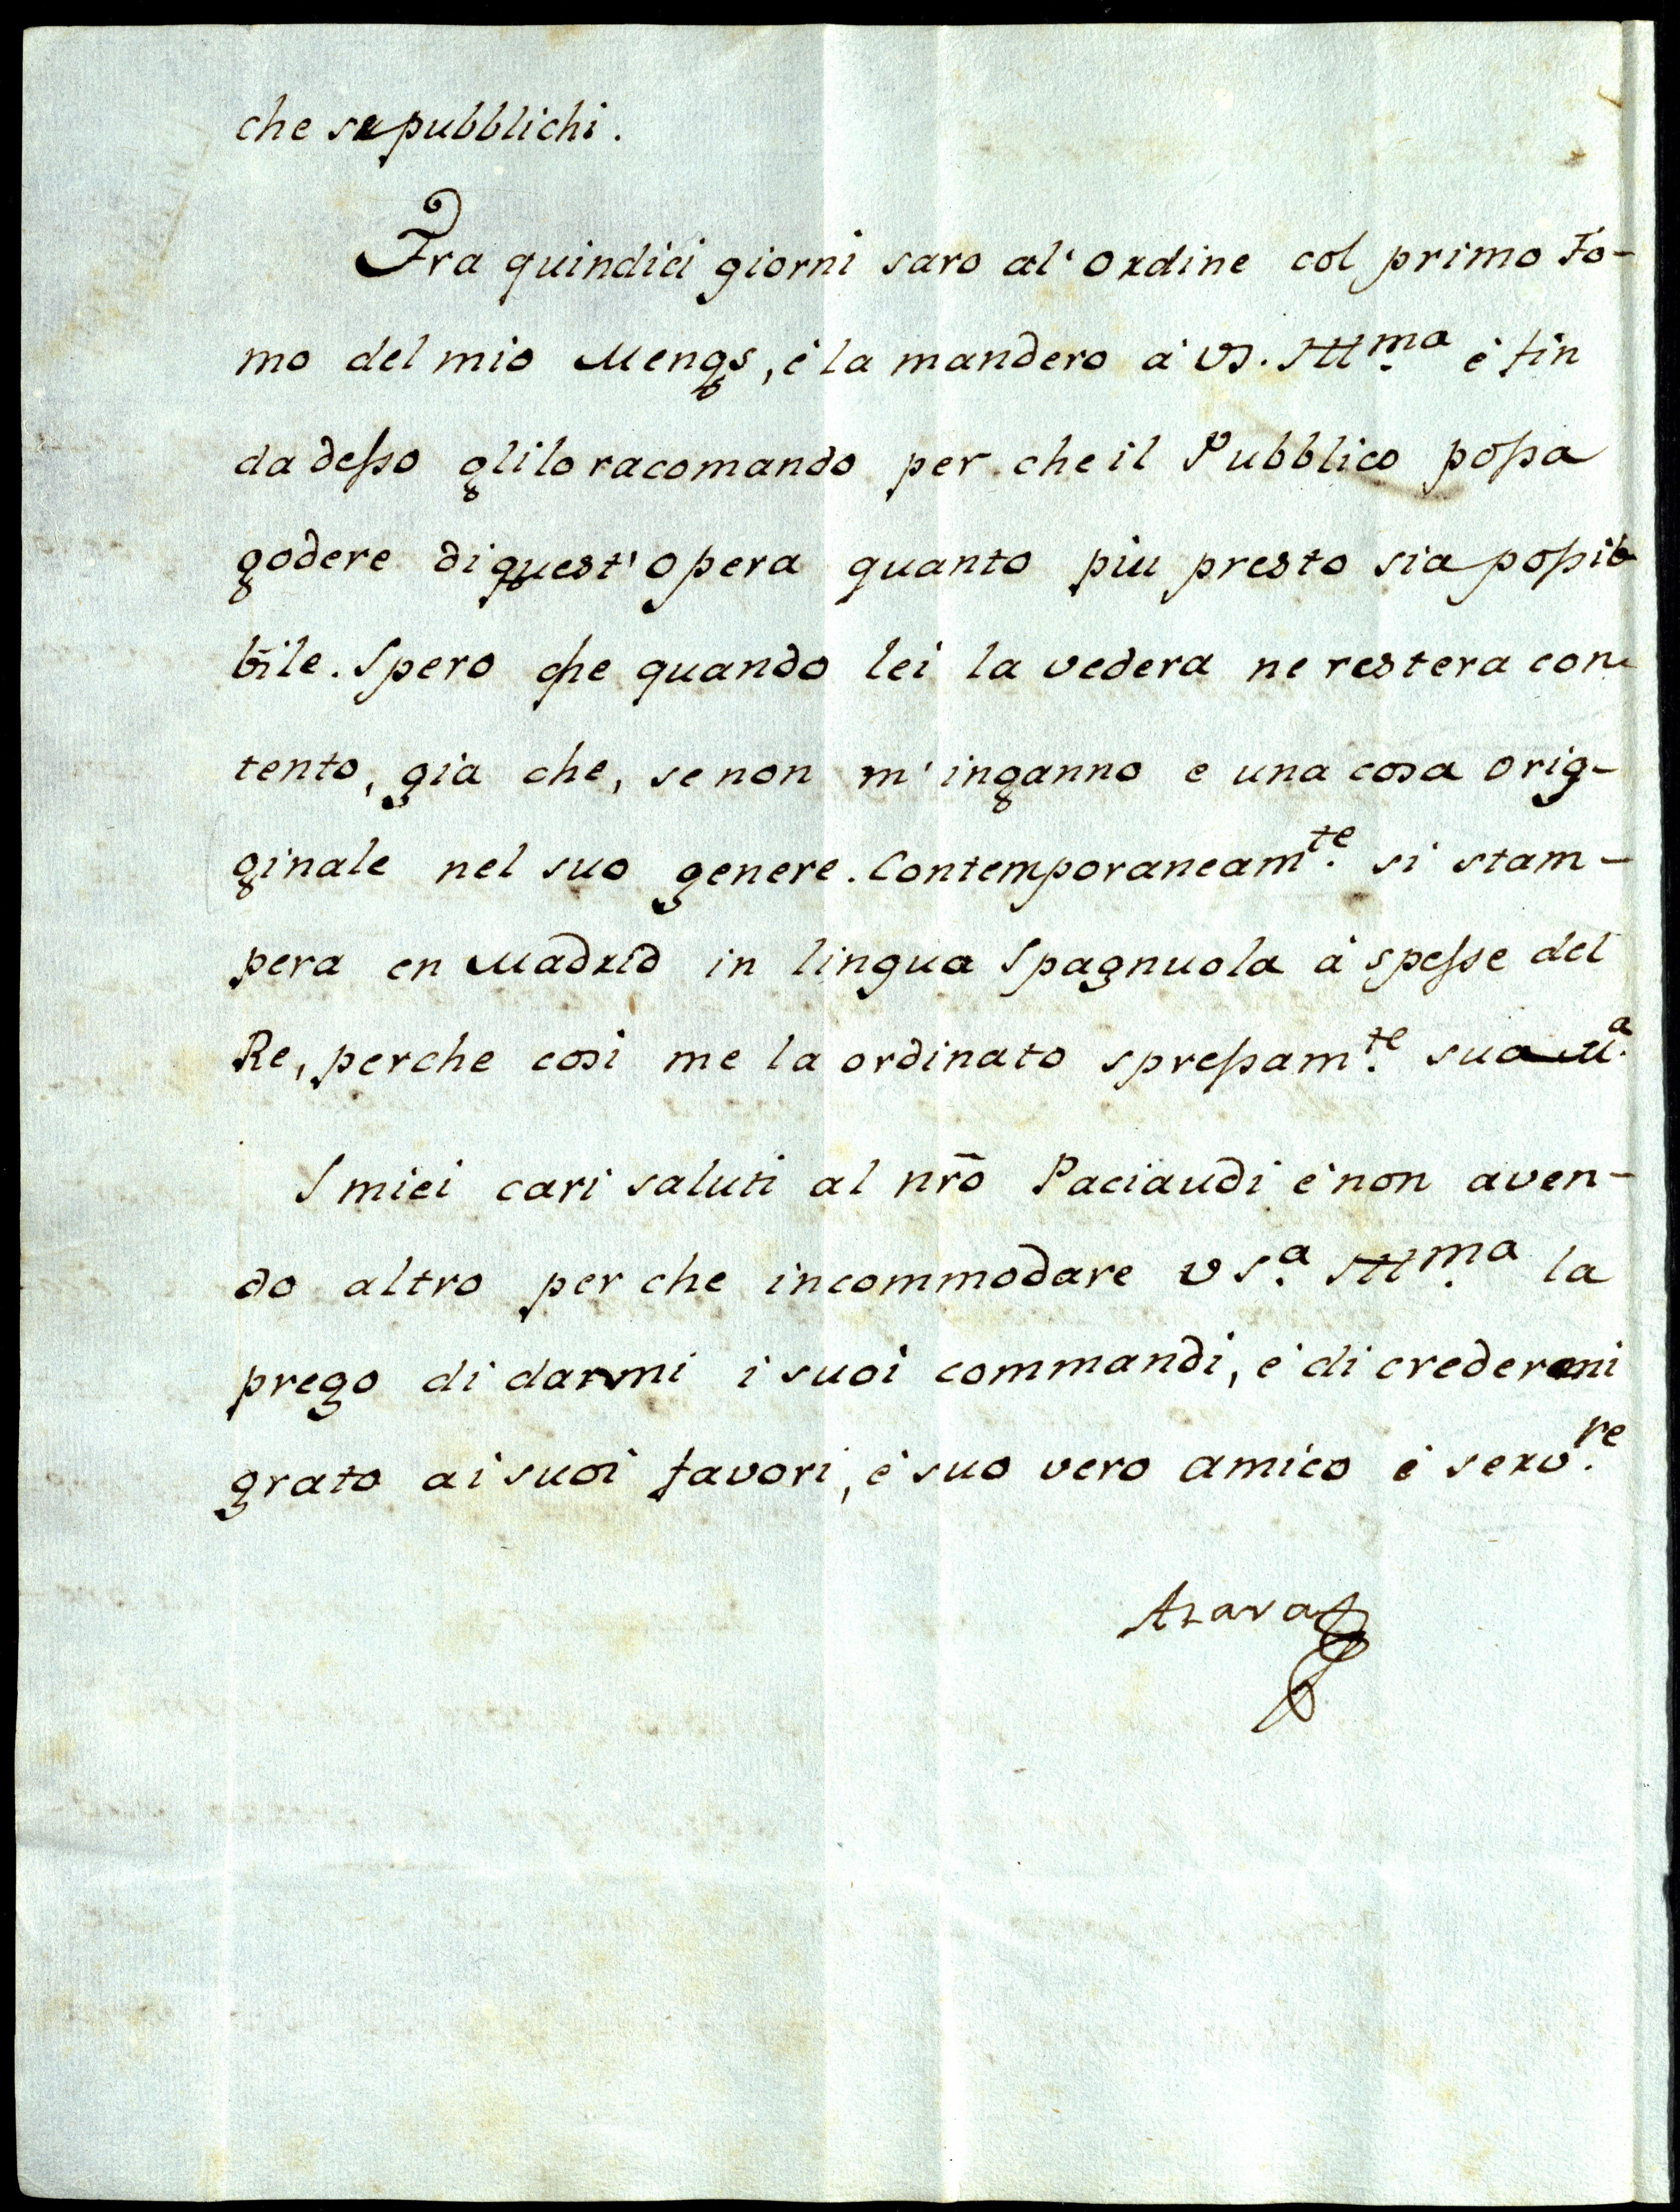 che se pubblichi.
Fra quindici giorni saro al' ordine col primo To-
mo del mio Mengs, è la mandero à VS. Illma è fin
dadesso glilo racomando per che il Pubblico possa
godere di quest' opera quanto piu presto sia possi-
bile. Spero che quando lei la vedera ne restera con-
tento, gia che, se non m' inganno e una cosa orig-
ginale nel suo genere. Contemporaneamte. si stam-
pera en Madrid in lingua Spagnuola à spesse del
Re, perche cosi me la ordinato spressamte. sua Ma.
I miei cari saluti al nr̃o Paciaudi è non aven-
do altro per che incommodare VSa. Illma. la
prego di darmi i suoi commandi, è di credermi
grato ai suoi favori, è suo vero amico è servre.
Azara